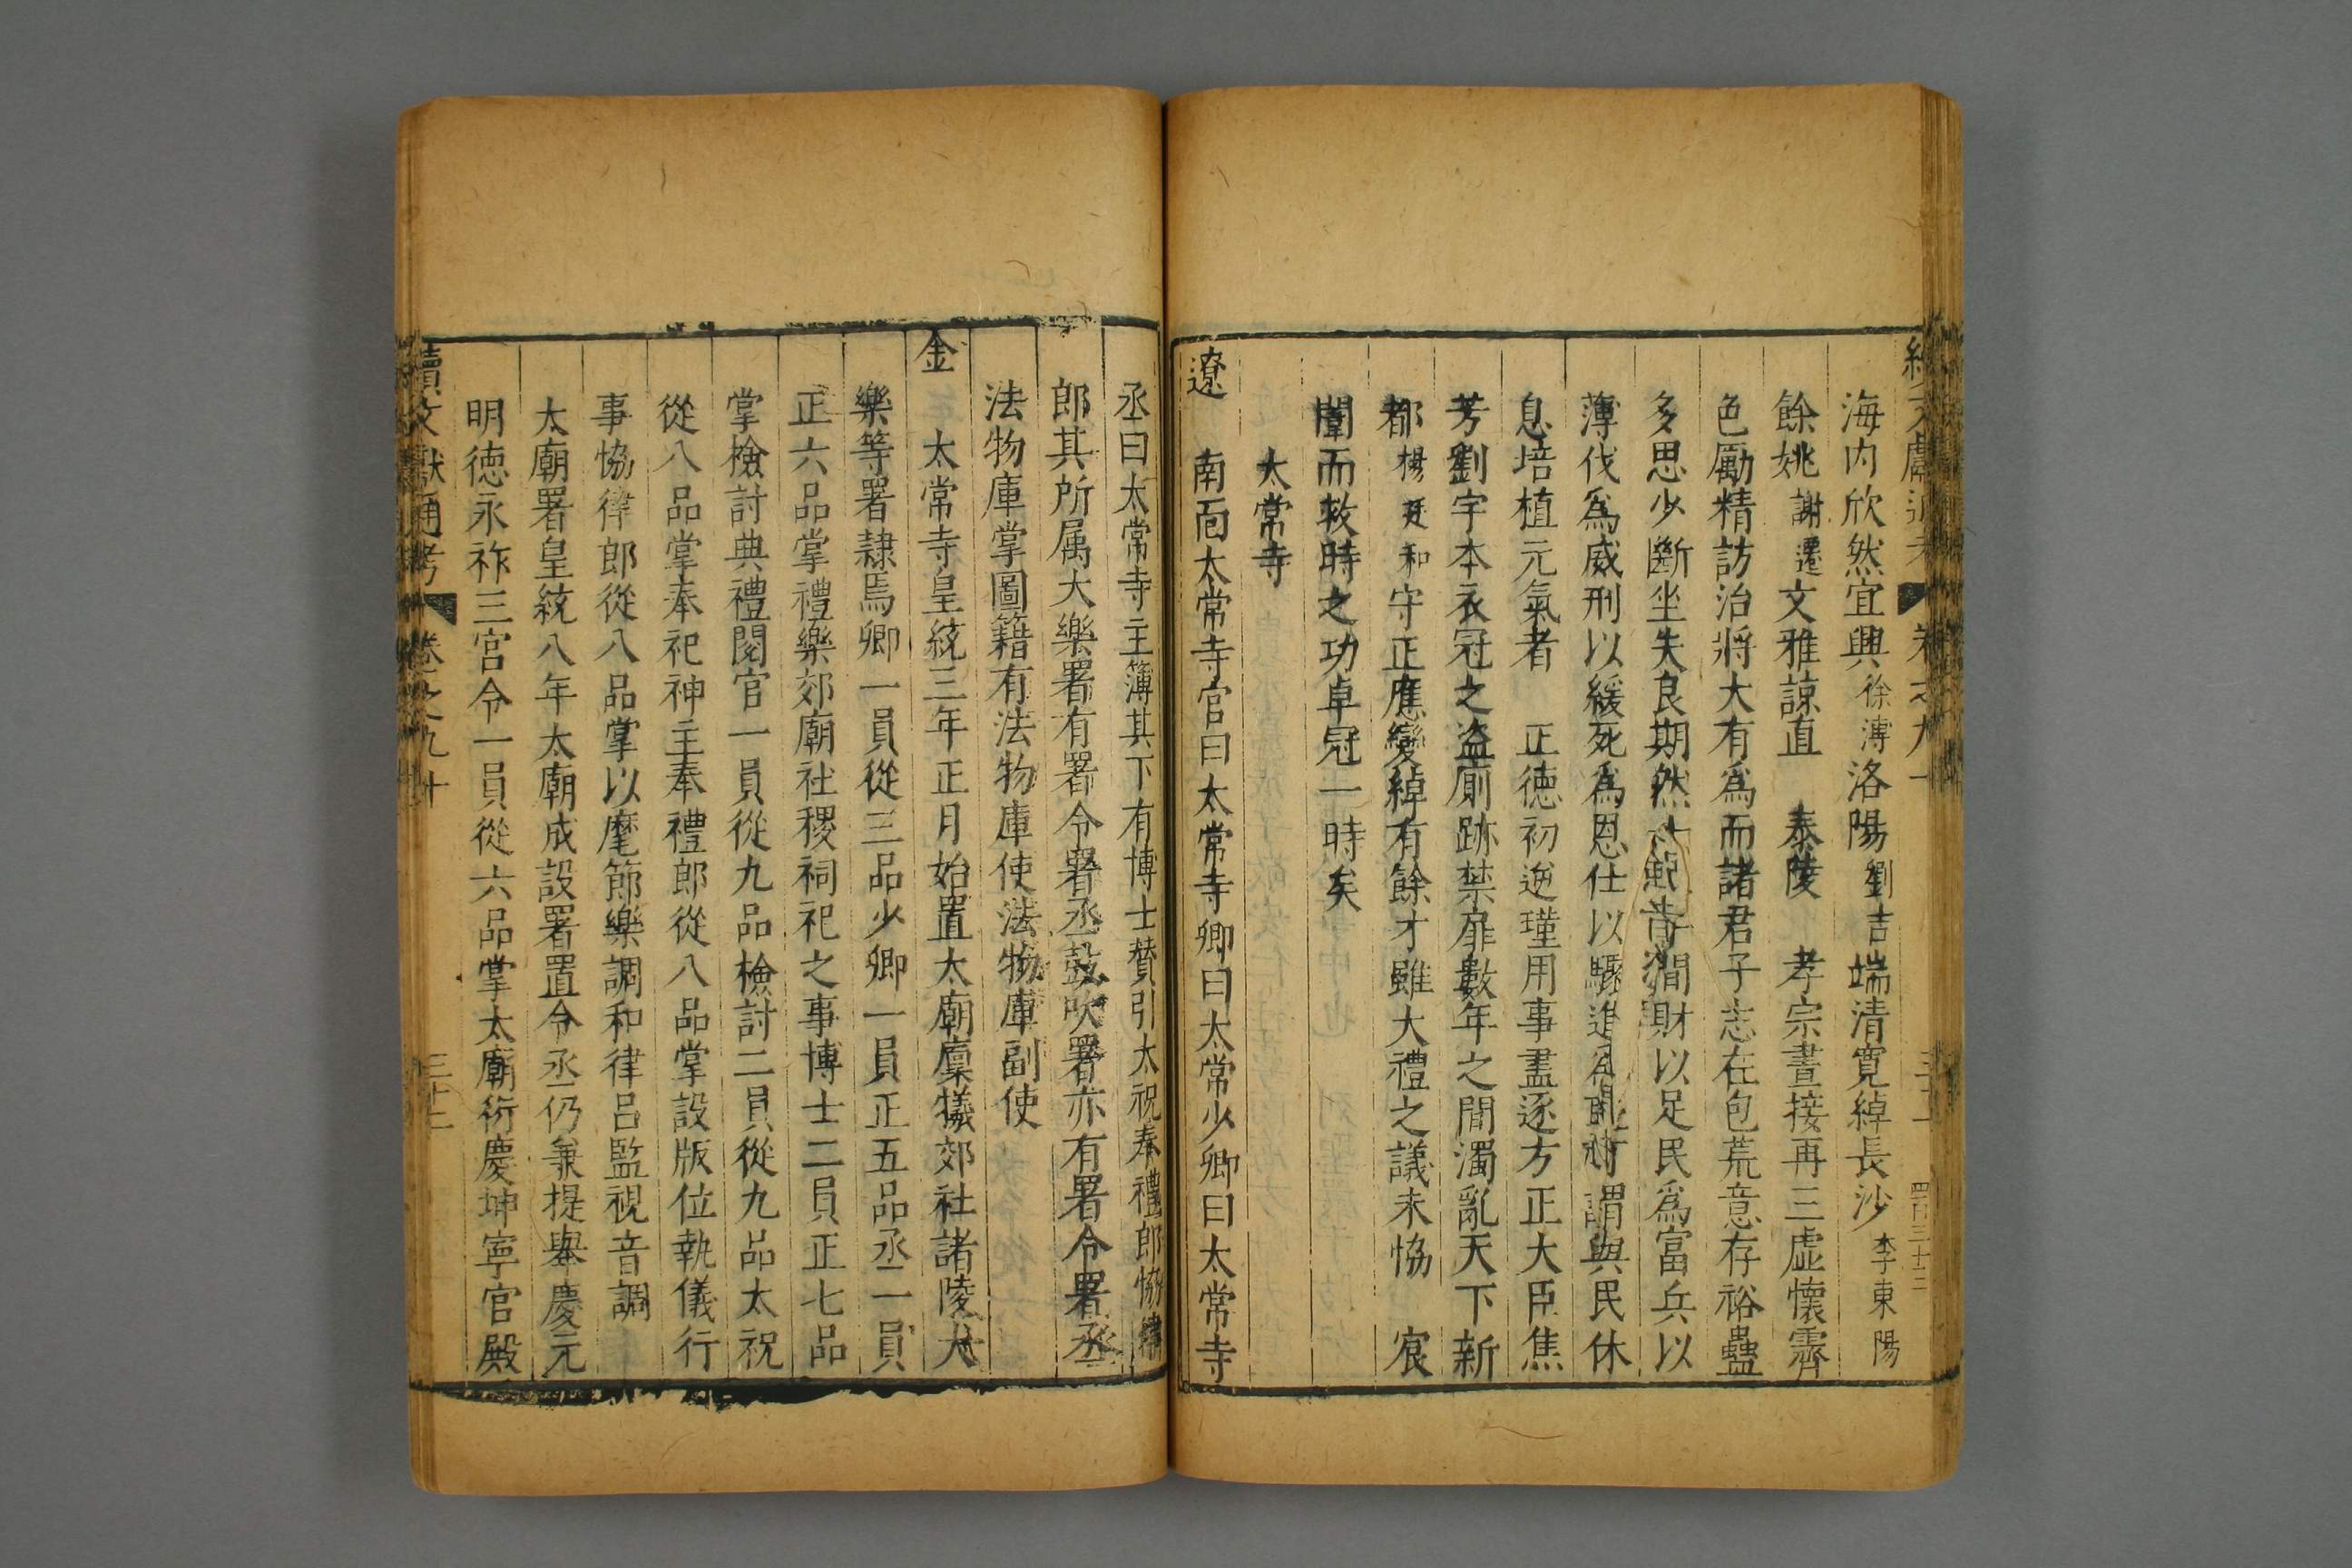 海内欣然宜興徐溥洛陽劉吉端清寛綽長沙李東陽
餘姚謝遷文雅諒直　泰陵　孝宗晝接再三虚懷霽
色勵精訪治將大有爲而諸君子志在包荒意存裕蠱
多思少斷坐失良期然　財以足民爲富兵以
薄伐爲威刑以緩死爲恩仕以驟進　謂與民休
息培植元氣者　正德初逆瑾用事盡逐方正大臣焦
芳劉宇本衣冠之盗厠跡禁扉數年之間濁亂天下新
都楊廷和守正應變綽有餘才雖大禮之議未恊　宸
闈而救時之功卓冠一時矣
太常寺
遼　南面太常寺官曰太常寺卿曰太常少卿曰太常寺
丞曰太常寺主簿其下有博士賛引太祝奉禮郎恊律
郎其所属大樂署有署令署丞鼓吹署亦有署令署丞
法物庫掌圖籍有法物庫使法物庫副使
金　太常寺皇統三年正月始置太廟廪犠郊社諸陵大
樂等署隷焉卿一員從三品少卿一員正五品丞一員
正六品掌禮樂郊廟社稷祠祀之事博士二員正七品
掌檢討典禮閱官一員從九品檢討二員從九品太祝
從八品掌奉祀神主奉禮郎從八品掌設版位執儀行
事恊律郎從八品掌以麾節樂調和律呂監視音調
太廟署皇統八年太廟成設署置令丞仍兼提舉慶元
明徳永祚三宫令一員從六品掌太廟衍慶坤寧宫殿
續文獻通考　卷之九十　三十二